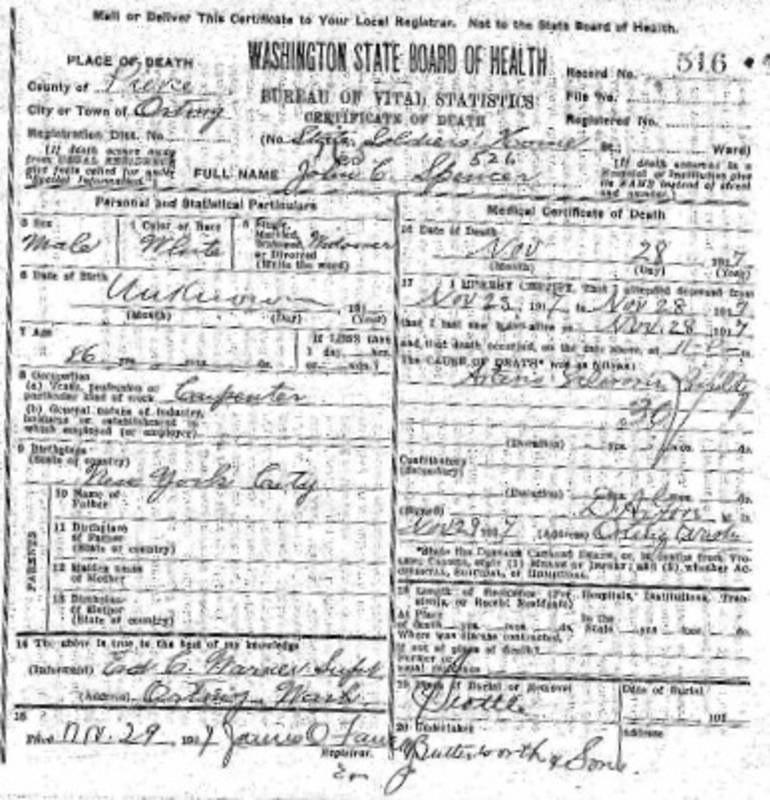 Mail or Deliver This Certificate to Your Local Registrar. Not to the State Board of Health.
PLACE OF DEATH
WASHINGTON STATE BOARD OF HEALTH
Record No. 516
County of Pierce
BUREAU OF VITAL STATISTICS
File No.
City or Town of Orting
CERTIFICATE OF DEATH
Registered No.
Registration Dist. No.
(No. State Soldiers' Home St. Ward)
526
(If death occurs away from USUAL RESIDENCE give facts called for under "Special Information.")
FULL NAME John C. Spencer
(If death occurred in a Hospital or Institution give its NAME instead of street and number.)
Personal and Statistical Particulars
3 Sex
Male
4 Color or Race
White
5 Single, Married, Widowed, or Divorced (Write the word)
Widower
6 Date of Birth
Unknown
(Month) (Day) (Year)
7 Age
86 yrs. mos. ds.
If LESS than 1 day, hrs. or min.?
8 Occupation
(a) Trade, profession or particular kind of work Carpenter
(b) General nature of industry, business or establishment in which employed (or employer)
9 Birthplace
(State or country)
New York City
PARENTS
10 Name of Father
11 Birthplace of Father (State or country)
12 Maiden name of Mother
13 Birthplace of Mother (State or country)
14 The above is true to the best of my knowledge
(Informant) Ed C. Warner Supt
(Address) Orting Wash.
15
Filed Nov. 29, 1917 James O.
Registrar.
Medical Certificate of Death
16 Date of Death
Nov 28 1917
(Month) (Day) (Year)
17 I HEREBY CERTIFY, That I attended deceased from
Nov 23, 1917 to Nov 28 1917
that I last saw h alive on Nov. 28 1917
and that death occurred, on the date above, at 11 m.
The CAUSE OF DEATH* was as follows:
Senility
(Duration) yrs. mos. ds.
Contributory
(Secondary)
(Duration) yrs. mos. ds.
(Signed) M. D.
Nov 29 1917 (Address) Orting Wash
*State the Disease Causing Death, or, in deaths from Violent Causes, state (1) Means of Injury; and (2) whether Accidental, Suicidal, or Homicidal.
18 Length of Residence (For Hospitals, Institutions, Transients, or Recent Residents)
At Place of death yrs. mos. ds. In the State yrs. mos. ds.
Where was disease contracted,
If not at place of death?
Former or usual residence
19 Place of Burial or Removal
Seattle
Date of Burial
191
20 Undertaker
Butterworth & Sons.
Address